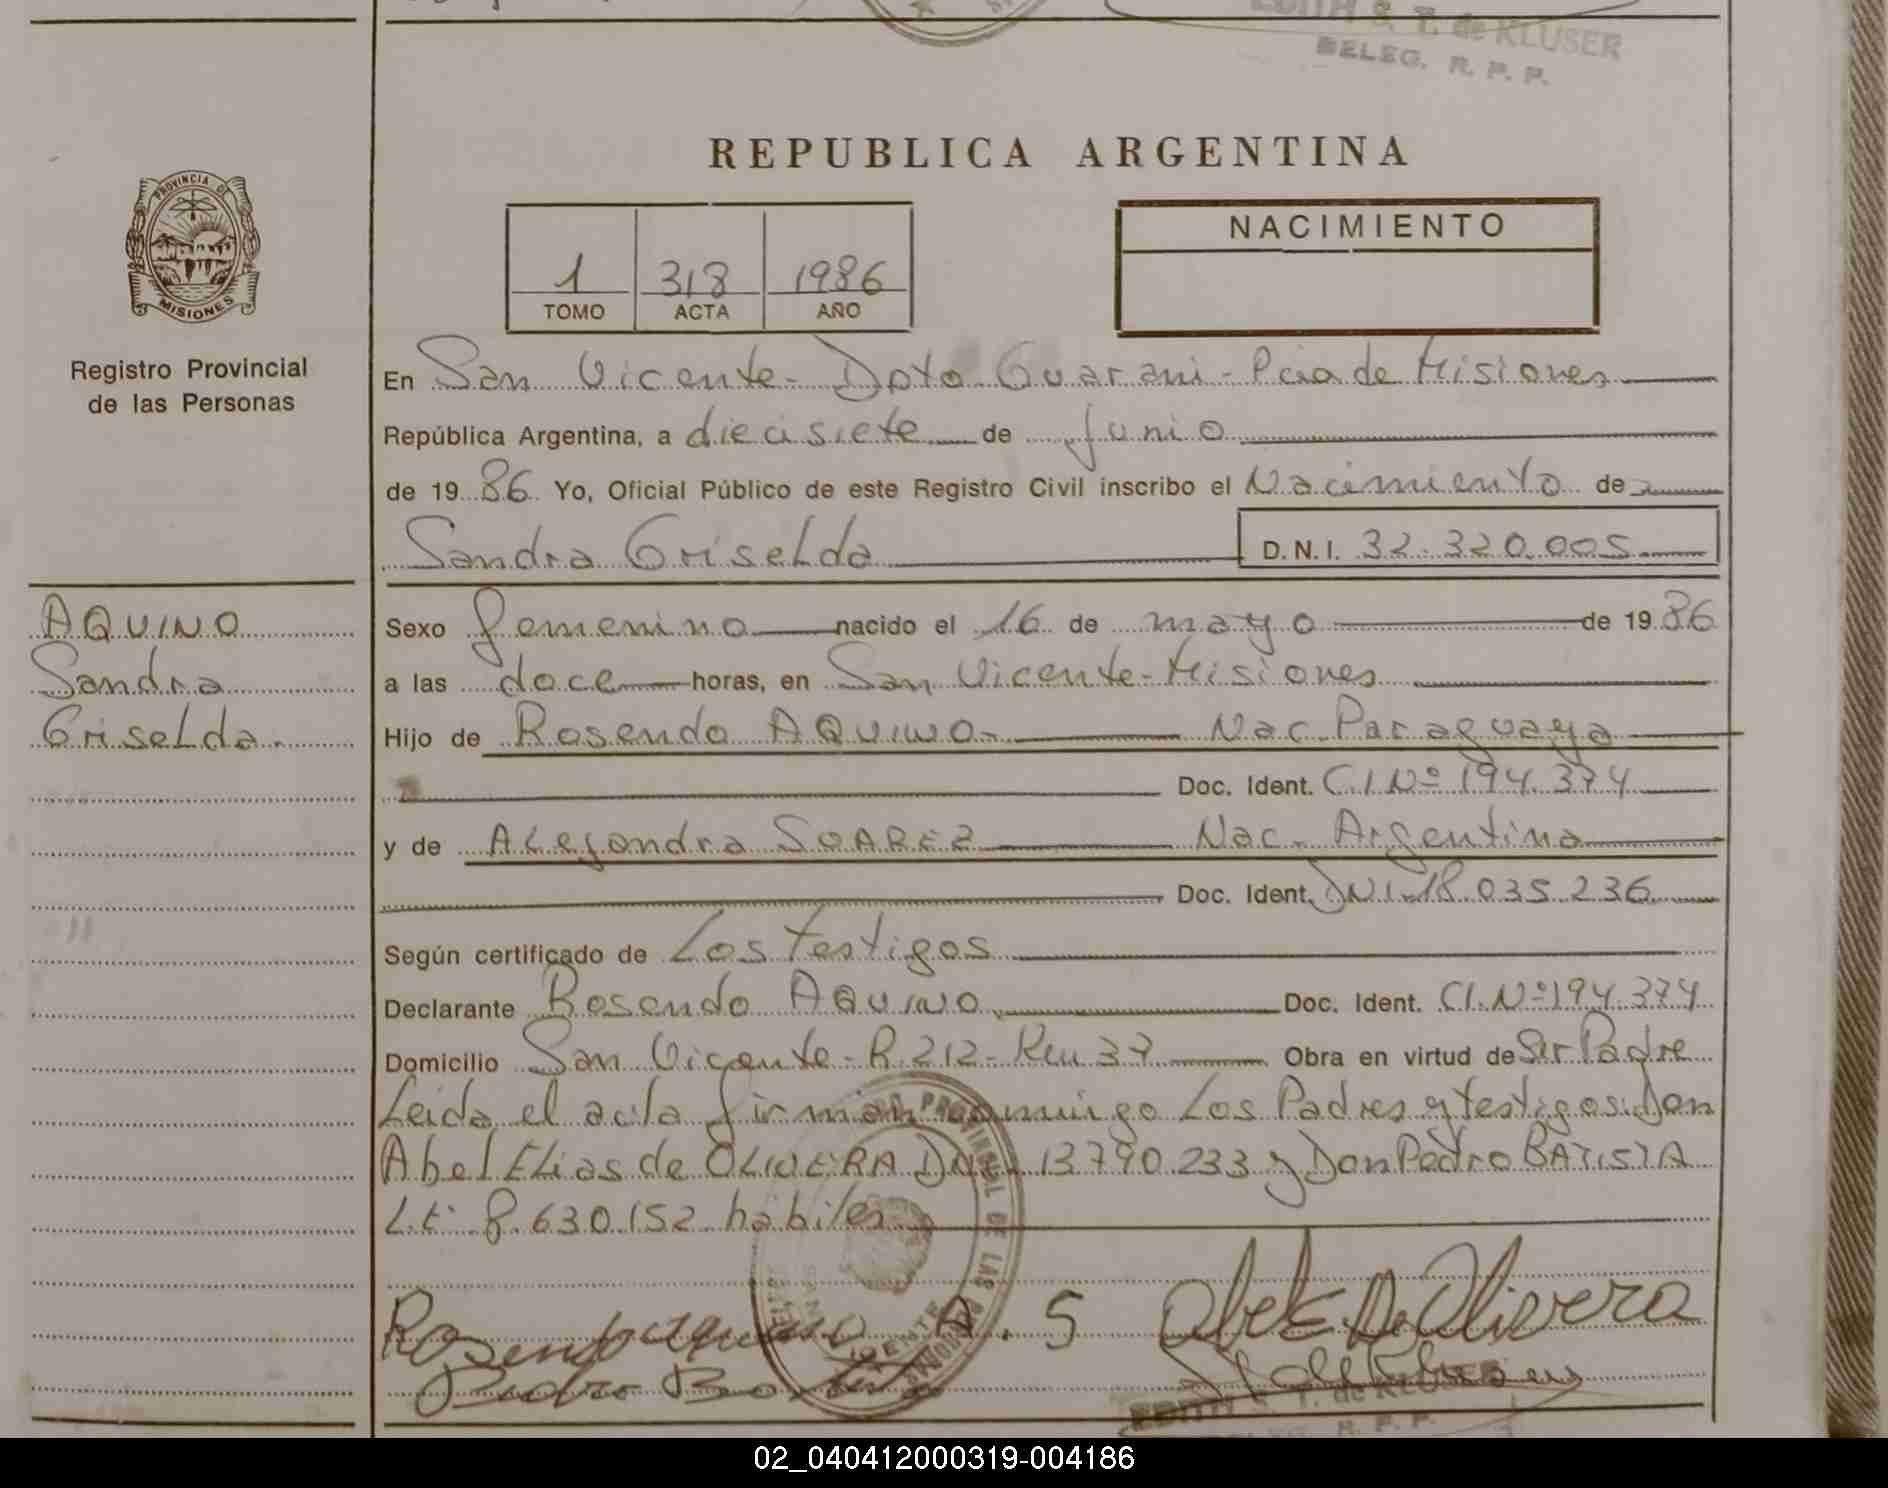 EDITH S. T. de KLUSER
DELEG. R. P. P.
REPUBLICA ARGENTINA
PROVINCIA DE
MISIONES
Registro Provincial
de las Personas
1 318 1986
TOMO ACTA AÑO
NACIMIENTO
En San Vicente - Dpto Guarani - Pcia de Misiones
República Argentina, a diecisiete de junio
de 1986 Yo, Oficial Público de este Registro Civil inscribo el Nacimiento de
Sandra Griselda D.N.I. 32.320.005
AQUINO
Sandra
Griselda.
Sexo femenino nacido el 16 de mayo de 1986
a las doce horas, en San Vicente - Misiones
Hijo de Rosendo AQUINO - Nac. Paraguaya
Doc. Ident. C.I. Nº 194.374
y de ALejandra SOAREZ Nac. Argentina
Doc. Ident. DNI 18.035.236
Según certificado de Los Testigos
Declarante Rosendo AQUINO Doc. Ident. CI. Nº 194.374
Domicilio San Vicente - R. 212 - Km 37 Obra en virtud de Ser Padre
Leida el acta firman conmigo Los Padres y testigos: Don
Abel ELias de OLIVERA DNI 13.790.233 y Don Pedro BATISTA
L.E. 8.630.152 habiles
Rosendo aquino A. S Abel E De Olivera
Pedro Batista
EDITH S. T. de KLUSER
R. P. P.
02_040412000319-004186